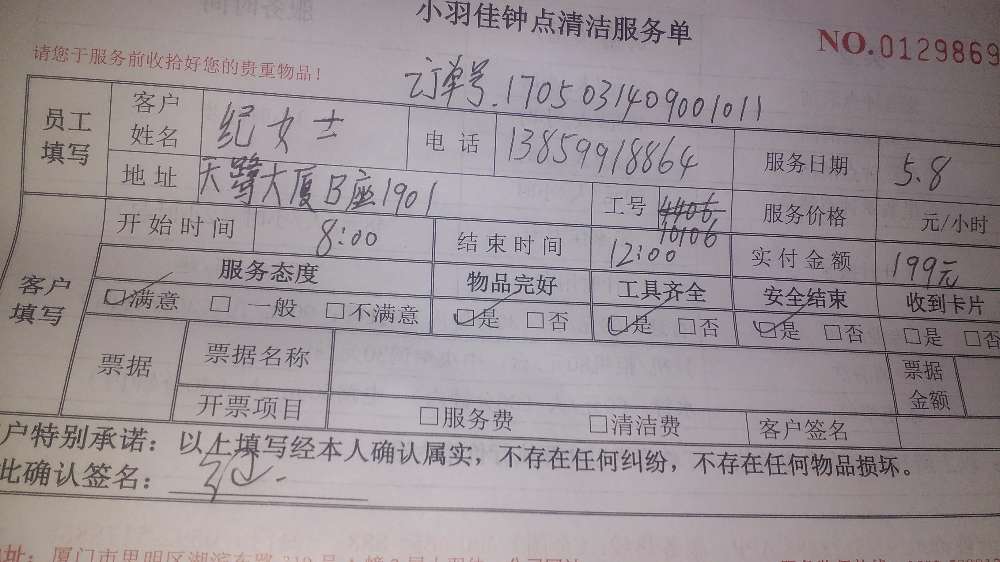 小羽佳钟点清洁服务单
NO.0129869
请您于服务前收拾好您的贵重物品！
订单号.1705031409001011
员工填写 客户姓名 纪女士 电话 13859918864 服务日期 5.8
地址 天鹭大厦B座1901 工号 10106 服务价格 元/小时
客户填写 开始时间 8:00 结束时间 12:00 实付金额 199元
服务态度 物品完好 工具齐全 安全结束 收到卡片
☑满意 □一般 □不满意 ☑是 □否 ☑是 □否 ☑是 □否 □是 □否
票据 票据名称 票据金额
开票项目 □服务费 □清洁费 客户签名
户特别承诺：以上填写经本人确认属实，不存在任何纠纷，不存在任何物品损坏。
此确认签名：纪
地址：厦门市思明区湖滨东路